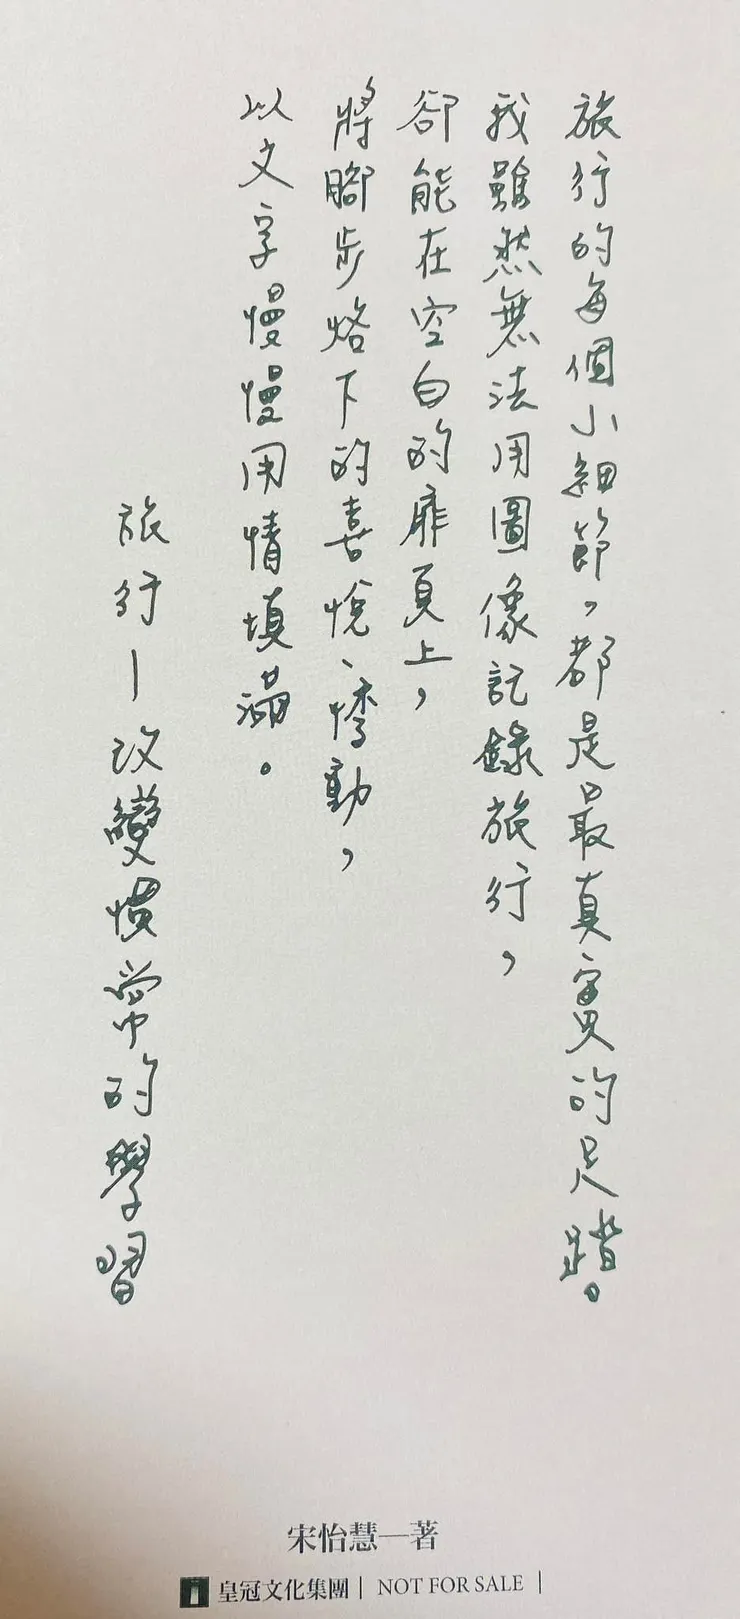 旅行的每個小細節，都是最真實的足蹟。
我雖然無法用圖像記錄旅行，
卻能在空白的扉頁上，
將腳步烙下的喜悅、悸動，
以文字慢慢用情填滿。
旅行—改變慣常的學習
宋怡慧—著
皇冠文化集團｜NOT FOR SALE｜